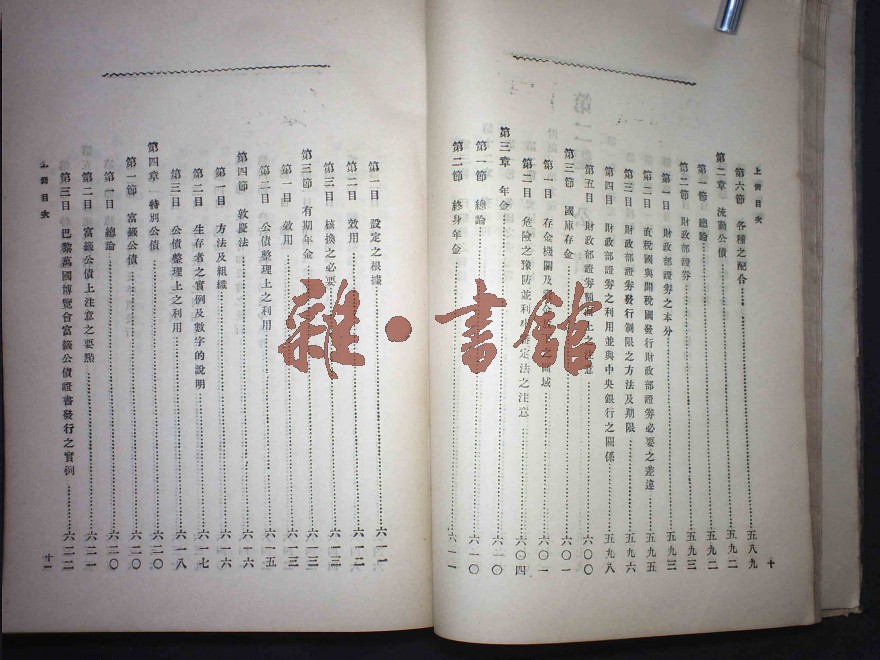 上冊目次
十
第六節 各種之配合 五八九
第二章 流動公債 五九二
第一節 總論 五九二
第二節 財政部證券 五九三
第一目 財政部證券之本分 五九三
第二目 直稅國與間稅國發行財政部證券必要之差違 五九五
第三目 財政部證券發行制限之方法及期限 五九六
第四目 財政部證券之利用並與中央銀行之關係 五九八
第五目 財政部證券 上之 六〇〇
第三節 國庫存金 六〇一
第一目 存金機關及 域 六〇一
第二目 危險之豫防並利 定法之注意 六〇四
第三章 年金 六一〇
第一節 總論 六一〇
第二節 終身年金 六一一
第一目 設定之根據 六一一
第二目 效用 六一二
第三目 核換之必要 六一二
第三節 有期年金 六一三
第一目 效用 六一三
第二目 公債整理上之利用 六一五
第四節 敦慶法 六一六
第一目 方法及組織 六一六
第二目 生存者之實例及數字的說明 六一七
第三目 公債整理上之利用 六一八
第四章 特別公債 六二〇
第一節 富籤公債 六二〇
第一目 總論 六二〇
第二目 富籤公債上注意之要點 六二一
第三目 巴黎萬國博覽會富籤公債證書發行之實例 六二二
上冊目次
十一
雜·書館